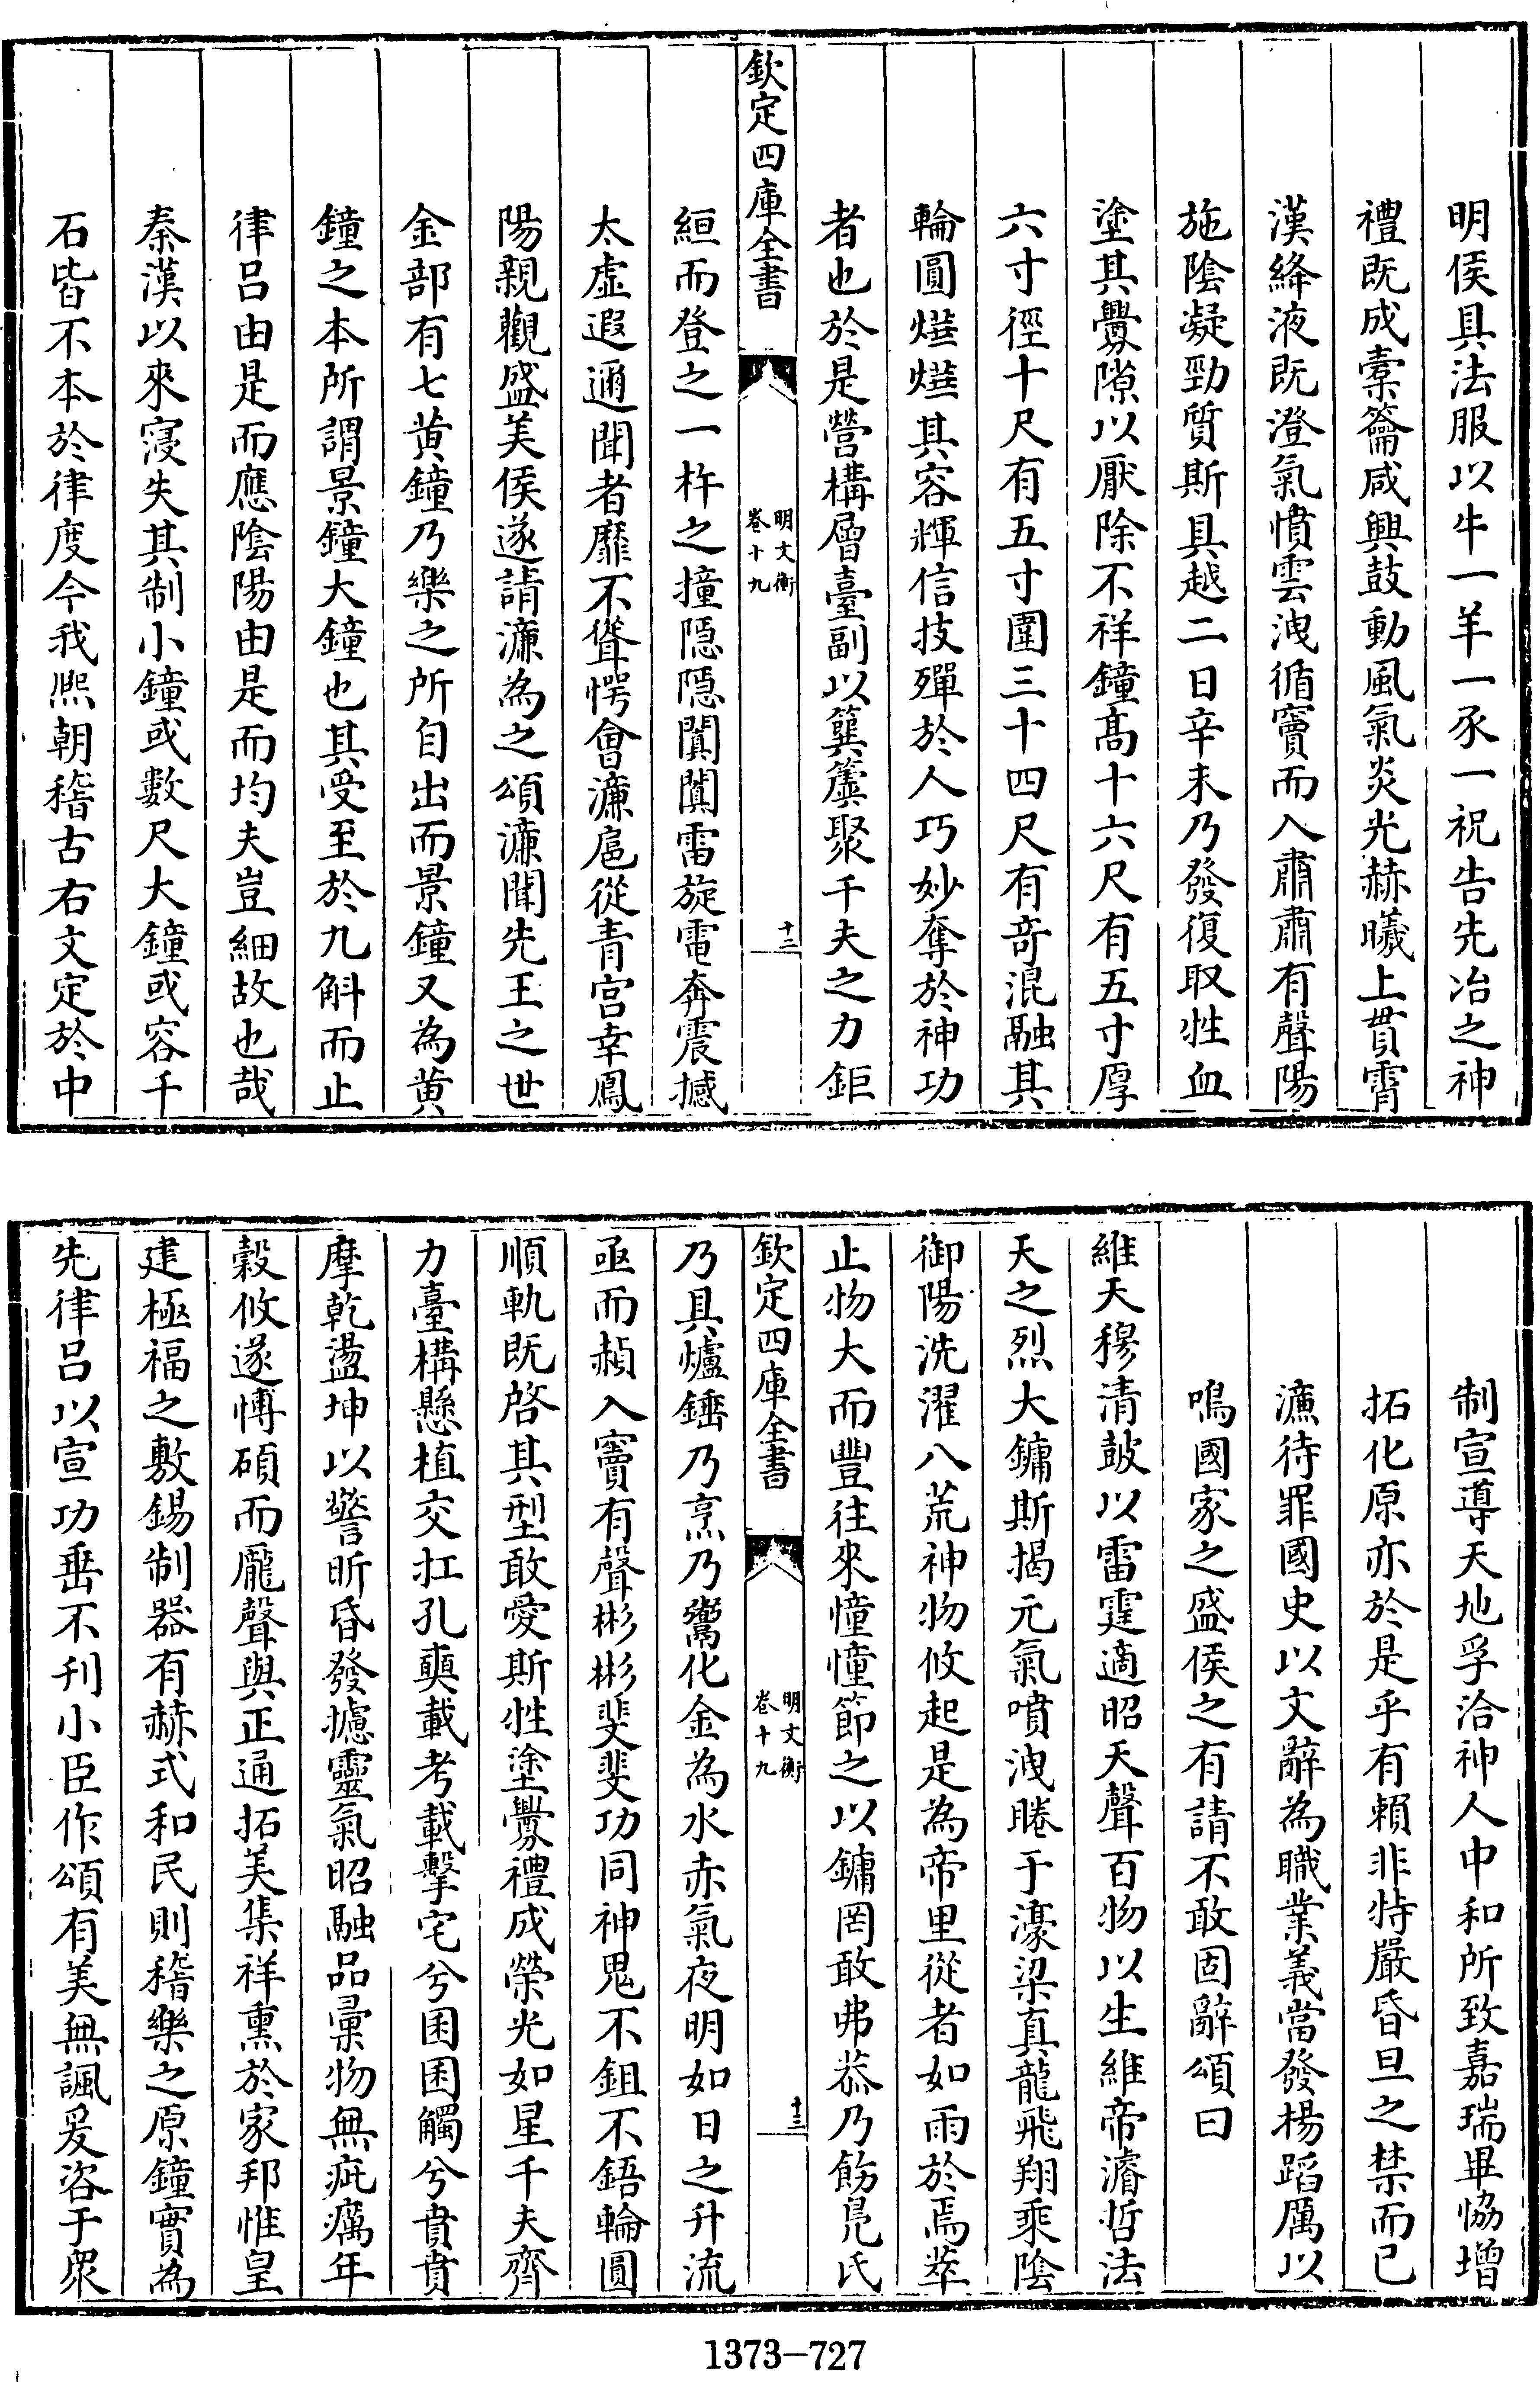 明侯具法服以牛一羊一豕一祝告先冶之神
禮既成橐籥咸興鼓動風氣炎光赫曦上貫霄
漢絳液既澄氣憤雲洩循竇而入肅肅有聲陽
施陰凝勁質斯具越二日辛未乃發復取牲血
塗其釁隙以厭除不祥鐘高十六尺有五寸厚
六寸徑十尺有五寸圍三十四尺有奇混融其
輪圓熿熿其容輝信技殫於人巧妙奪於神功
者也於是營構層臺副以簨簴聚千夫之力鉅
欽定四庫全書
明文衡
卷十九
十二
絙而登之一杵之撞隱隱闐闐雷旋電奔震撼
太虛遐邇聞者靡不聳愕會濂扈從青宮幸鳳
陽親觀盛美侯遂請濂為之頌濂聞先王之世
金部有七黄鐘乃樂之所自出而景鐘又為黄
鐘之本所謂景鐘大鐘也其受至於九斛而止
律呂由是而應陰陽由是而均夫豈細故也哉
秦漢以來寖失其制小鐘或數尺大鐘或容千
石皆不本於律度今我熙朝稽古右文定於中
制宣導天地孚洽神人中和所致嘉瑞畢恊增
拓化原亦於是乎有賴非特嚴昏旦之禁而已
濂待罪國史以文辭為職業義當發楊蹈厲以
鳴國家之盛侯之有請不敢固辭頌曰
維天穆清鼓以雷霆適昭天聲百物以生維帝濬哲法
天之烈大鏞斯揭元氣噴洩睠于濠梁真龍飛翔乘陰
御陽洗濯八荒神物攸起是為帝里從者如雨於焉萃
止物大而豐往來憧憧節之以鏞罔敢弗恭乃飭鳧氏
欽定四庫全書
明文衡
卷十九
十三
乃具爐錘乃烹乃鬻化金為水赤氣夜明如日之升流
亟而赬入竇有聲彬彬斐斐功同神鬼不鉏不鋙輪圓
順軌既啓其型敢愛斯牲塗釁禮成榮光如星千夫齊
力臺構懸植交扛孔奭載考載擊宅兮囷囷觸兮賁賁
摩乾盪坤以警昕昏發攄靈氣昭融品彙物無疵癘年
穀攸遂愽碩而龎聲與正通拓美集祥熏於家邦惟皇
建極福之敷錫制器有赫式和民則稽樂之原鐘實為
先律呂以宣功垂不刋小臣作頌有美無諷爰咨于衆
1373-727